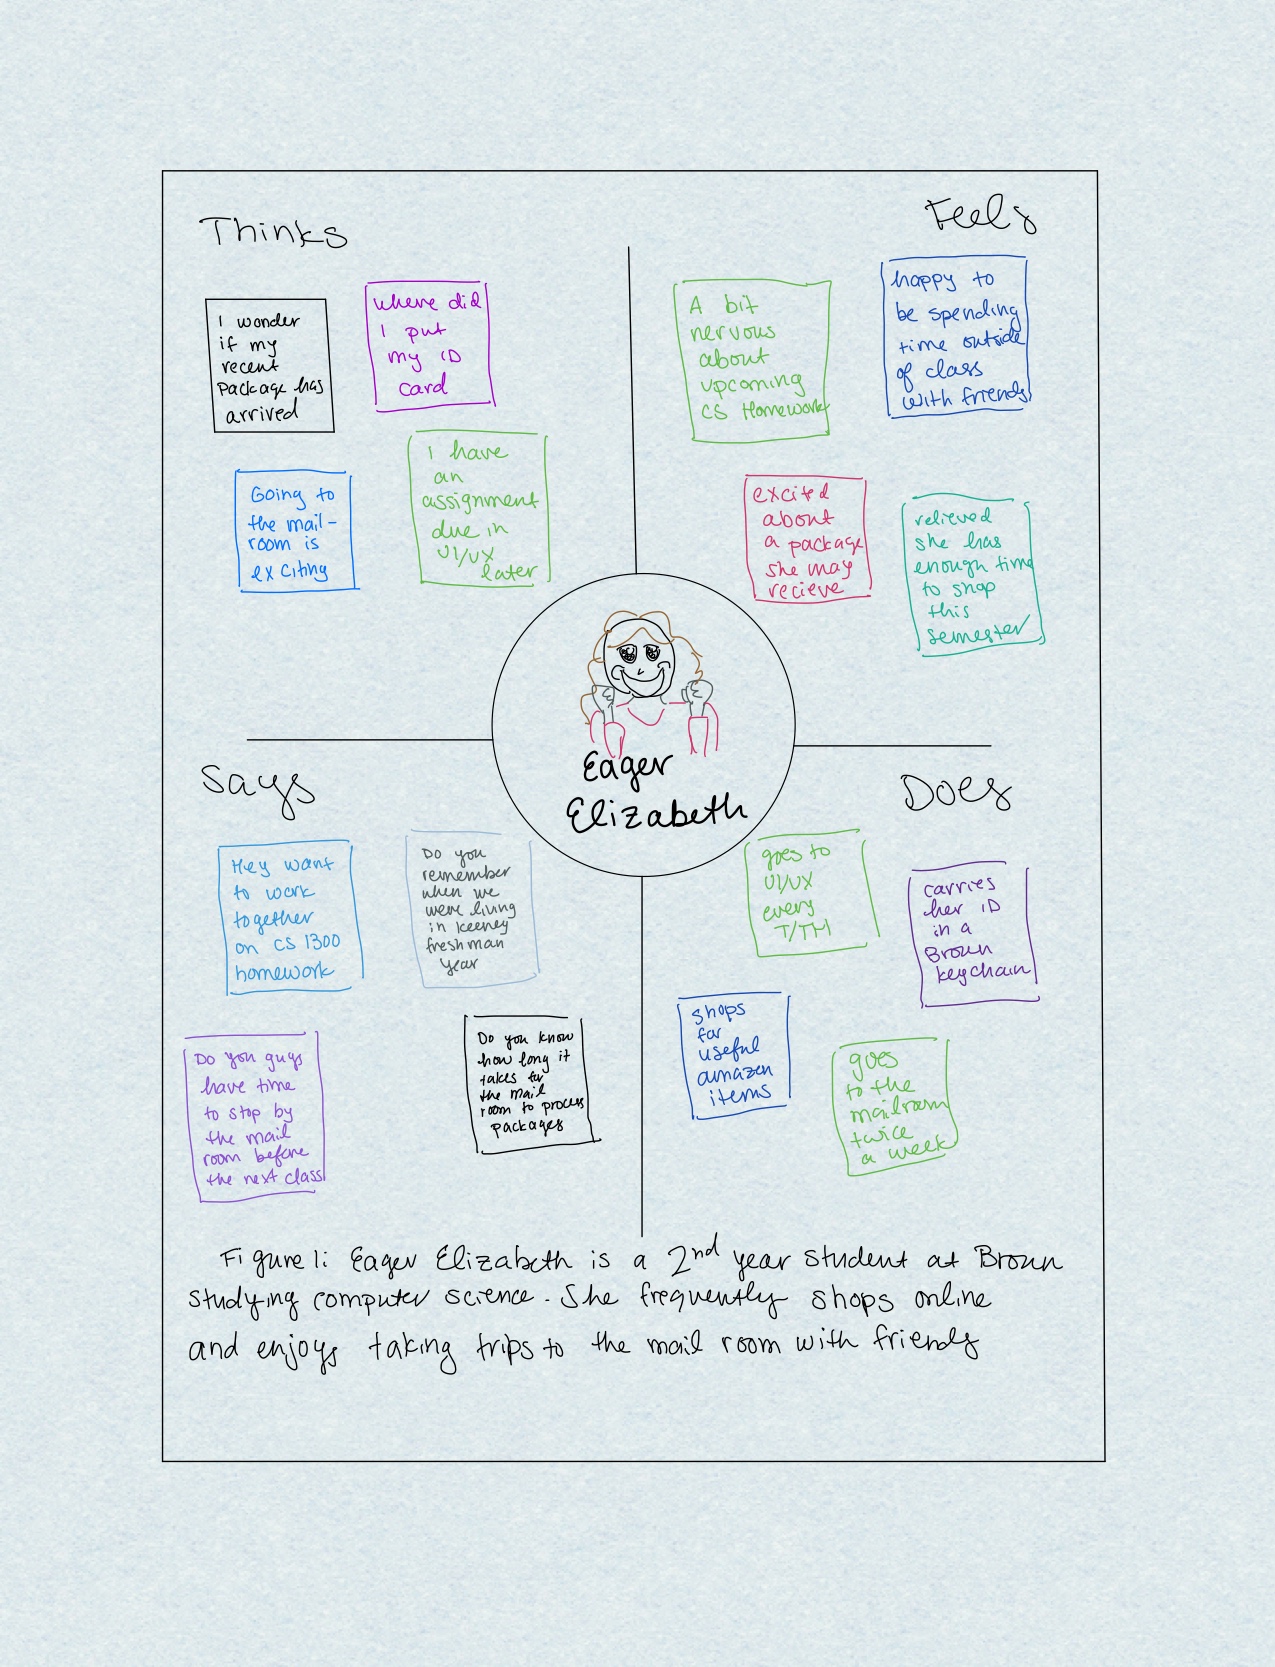 Thinks
I wonder
if my
recent
package has
arrived
where did
I put
my ID
card
Going to
the mail-
room is
exciting
I have
an
assignment
due in
UI/UX
later
Feels
A bit
nervous
about
upcoming
CS Homework
happy to
be spending
time outside
of class
with friends
excited
about
a package
she may
recieve
relieved
she has
enough time
to shop
this
semester
Eager
Elizabeth
Says
Hey want
to work
together
on CS 1300
homework
Do you
remember
when we
were living
in keeney
freshman
year
Do you guys
have time
to stop by
the mail
room before
the next class
Do you know
how long it
takes for
the mail
room to process
packages
Does
goes to
UI/UX
every
T/TH
carries
her ID
in a
Brown
keychain
shops
for
useful
amazon
items
goes
to the
mailroom
twice
a week
Figure 1: Eager Elizabeth is a 2nd year student at Brown
studying computer science. She frequently shops online
and enjoys taking trips to the mail room with friends